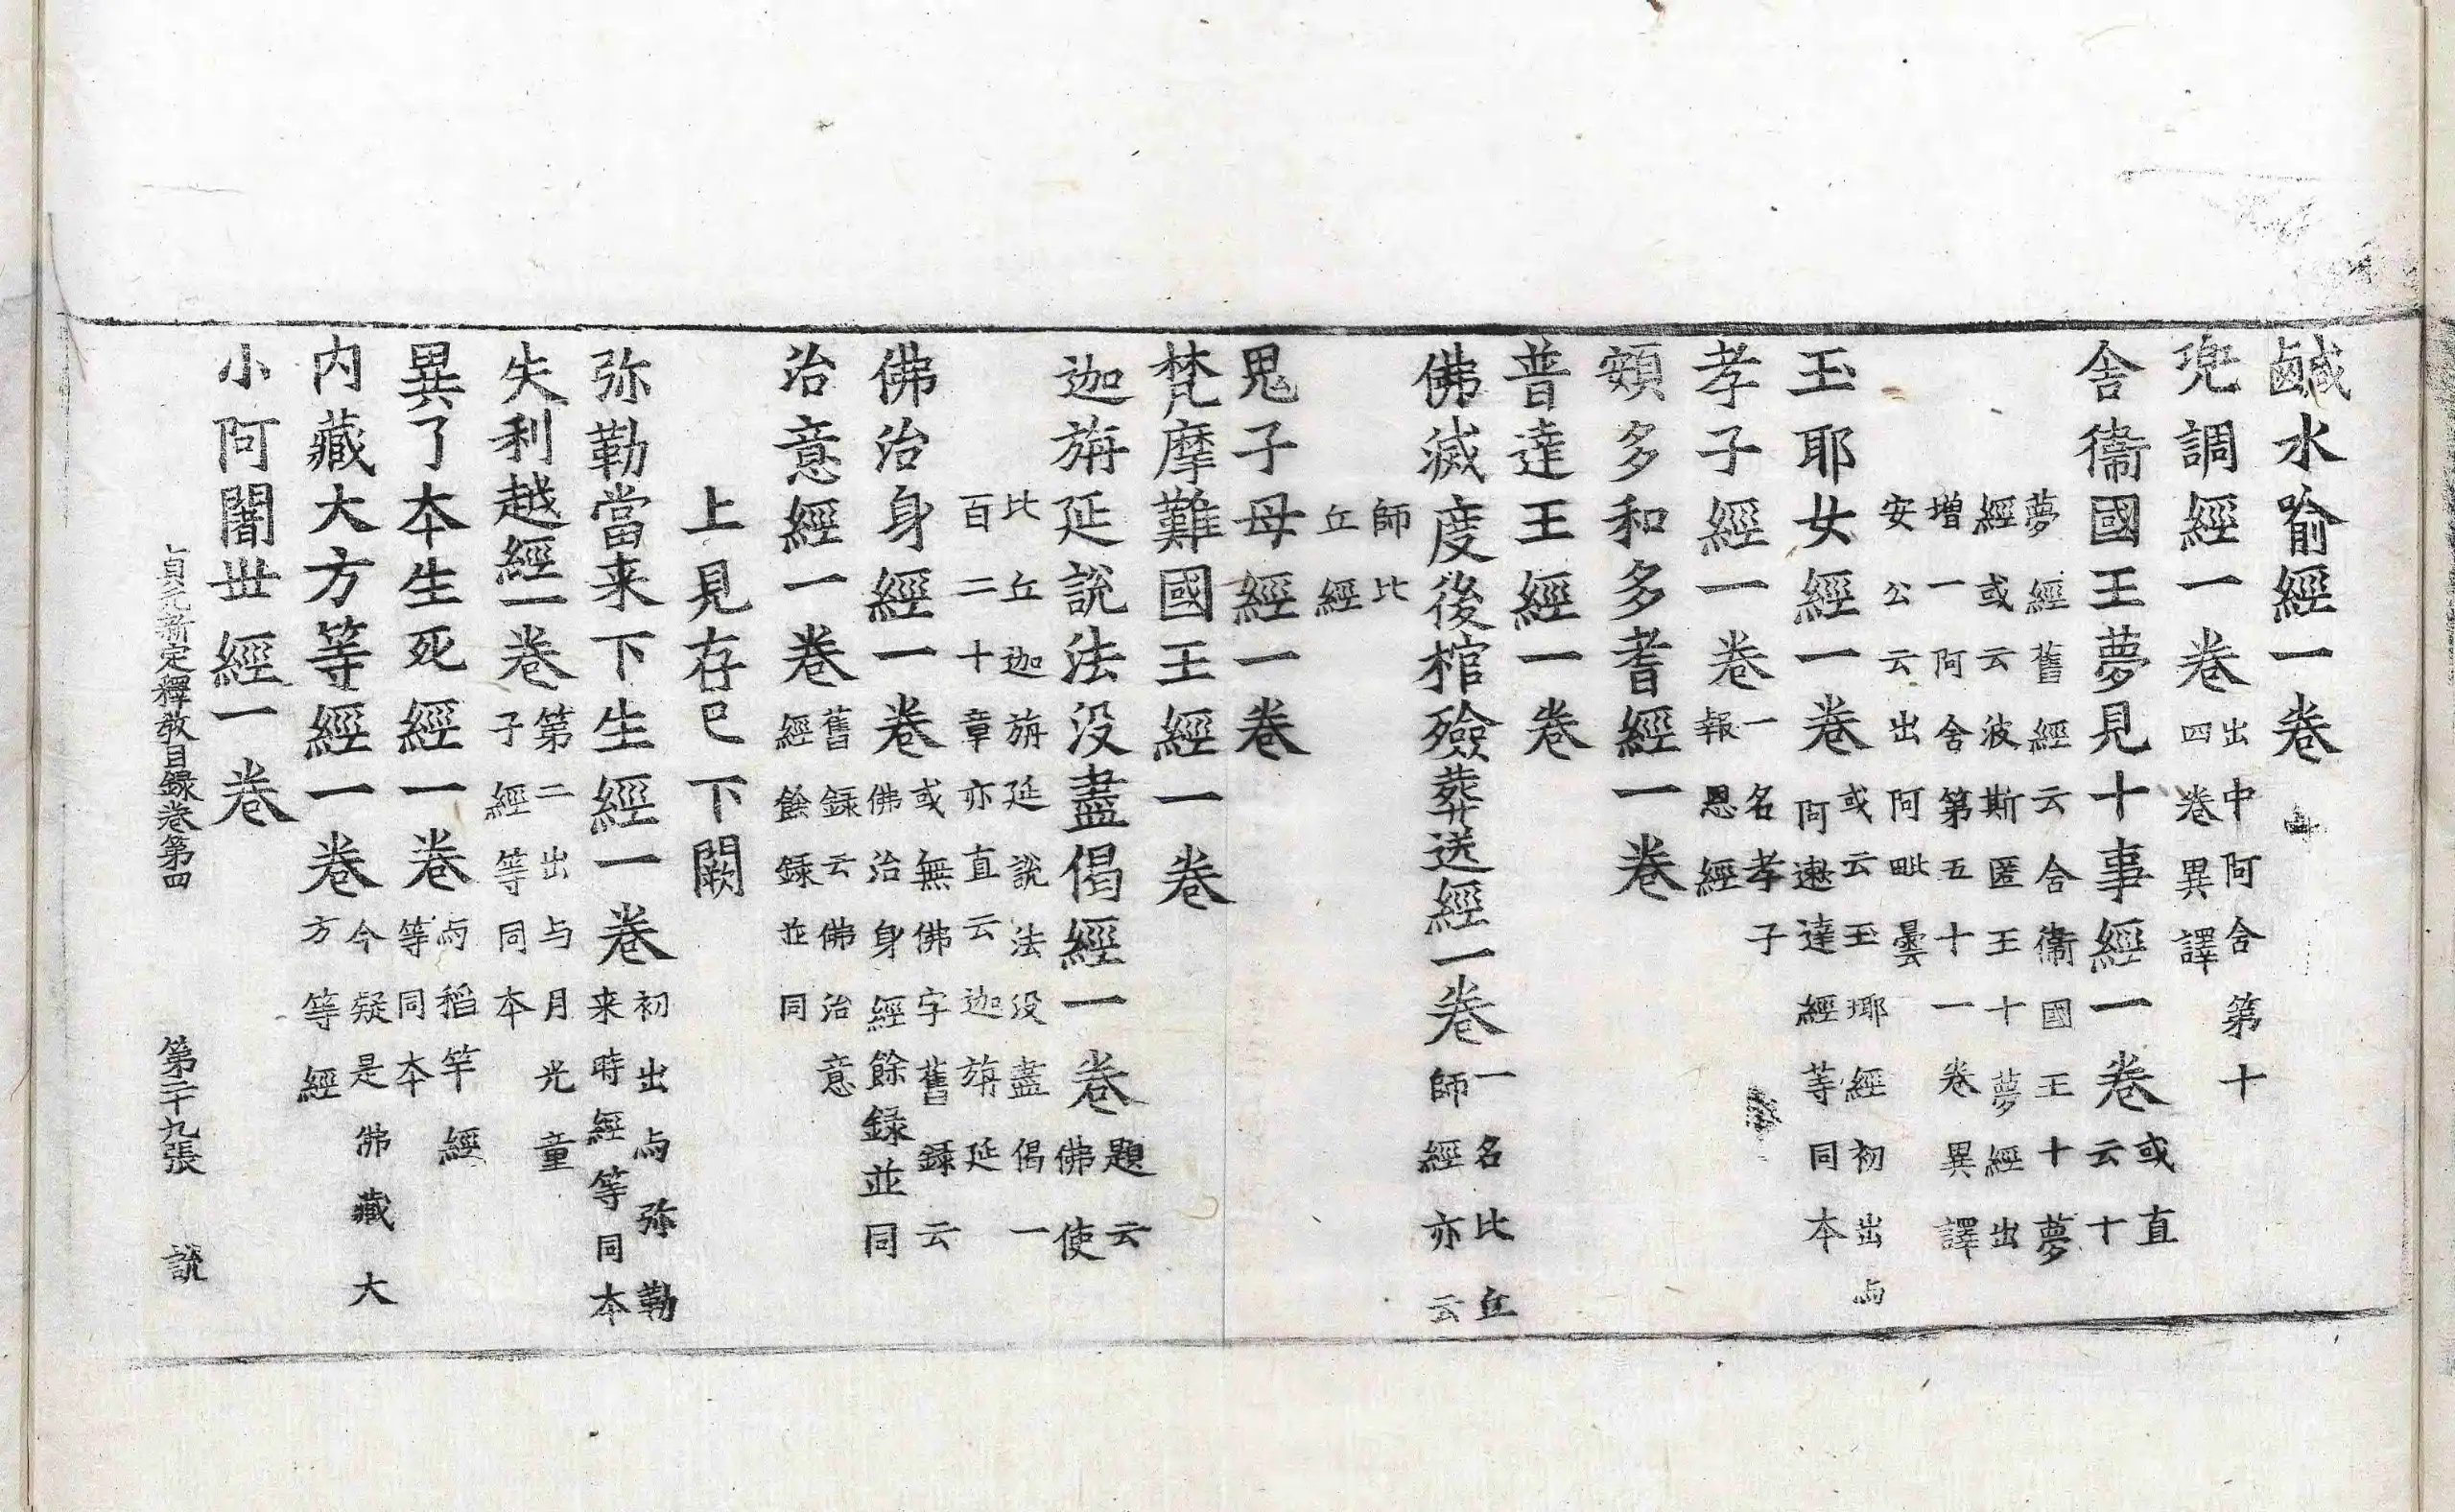 鹹水喻經一卷
兜調經一卷出中阿含第十
四卷異譯
舍衞國王夢見十事經一卷或直
云十
夢經舊經云舍衞國王十夢
經或云波斯匿王十夢經出
增一阿含第五十一卷異譯
安公云出阿毗曇
玉耶女經一卷或云玉瑘經初出与
阿遬達經等同本
孝子經一卷一名孝子
報恩經
頞多和多耆經一卷
普達王經一卷
佛滅度後棺殮葬送經一卷一名比丘
師經亦云
師比
丘經
鬼子母經一卷
梵摩難國王經一卷
迦旃延說法没盡偈經一卷題云
佛使
比丘迦旃延說法没盡偈一
百二十章亦直云迦旃延
佛治身經一卷或無佛字舊錄云
佛治身經餘錄並同
治意經一卷舊錄云佛治意
經餘錄並同
上見存巳下闕
弥勒當来下生經一卷初出与弥勒
来時經等同本
失利越經一卷第二出与月光童
子經等同本
異了本生死經一卷与稻竿經
等同本
内藏大方等經一卷今疑是佛藏大
方等經
小阿闍世經一卷
貞元新定釋教目録卷第四　第二十九張　說